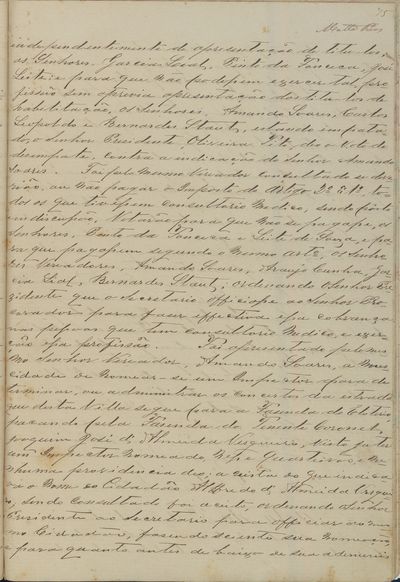 75
independentemente de apresentação de titulos
os Senhores Garcia Leal, Pinto da Fonceca, José
Leite e para que não podessem exercer tal pro
fissão sem a previa apresentação dos titulos de
habelitação, os Senhores Amando Soares, Carlos
Leopoldo e Bernardes Staut, estando impata
do, o Senhor Presidente Oliveira Leite, deo o voto de
desempate, contra a indicação do Senhor Amando
Soares. Foi pelo mesmo Vereador consultado se devi
ão, ou não pagar o imposto do Artgo to
dos os que tivessem consultorio Medico, sendo posto
em discussão, Votarão para que não se pagasse, os
Senhores, Pinto da Fonceca e Leite de Souza, e pa
ra que pagassem segundo o mesmo artº, os Senho
res Vereadores, Amando Soares, Araujo Cunha, Gar
cia Leal, Bernardes Staut; ordenando o Senhor Pre
zidente que o Secretario officiasse ao Senhor Pro
curador para fazer effectiva essa cobrança
nas pessoas que tem consultorio Medico, e exer
ção essa profissão. Foi apresentado pelo mes
mo Senhor Vereador, Amando Soares, a neces
cidade de nomear-se um Inspector para de
terminar, ou administrar os concertos da estrada
que desta Villa segue para a Fazenda do
passando pela Fazenda do Tenente Coronel,
Joaquim José d'Almeida visto ja ter
um Inspector nomeado, e ne
nhuma providencia deo, a vista do que indica
va o nome do Cidadão Alfredo d'Almeida
o, sendo consultado foi aceito, ordenando o Senhor
Presidente ao Secretario para officiar ao mes
mo Cidadão, fazendo sciente sua nomeação
e para quanto antes dê baixo de sua adminis